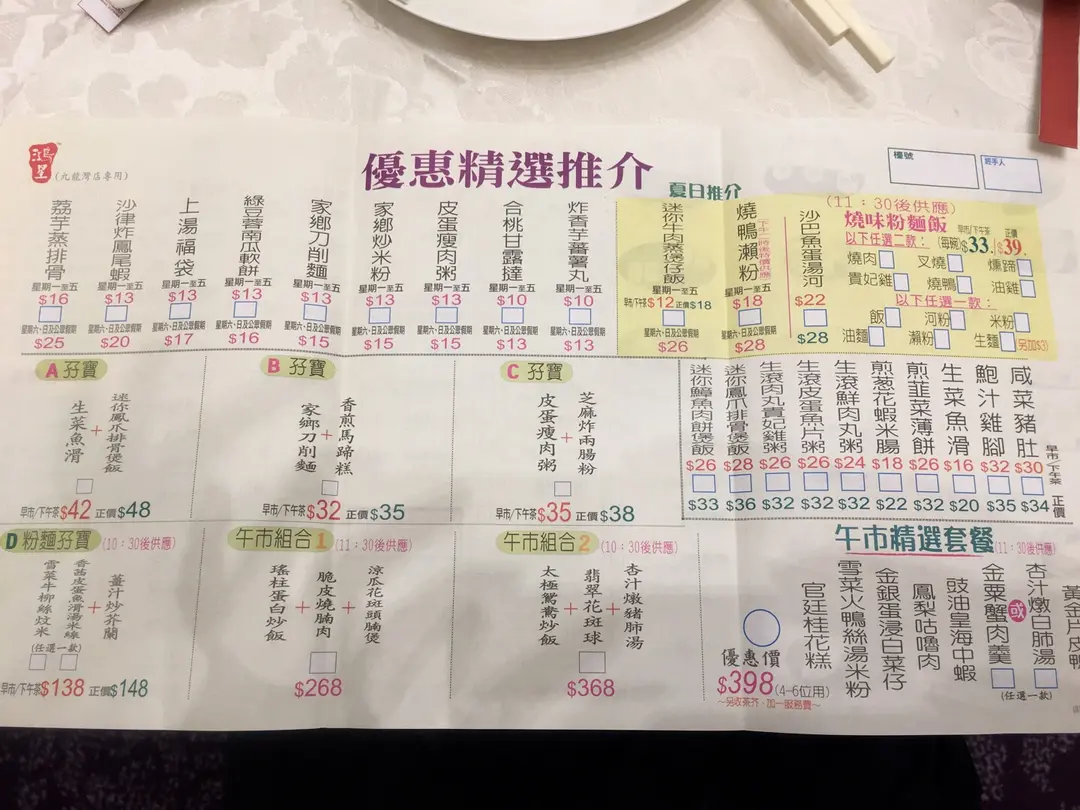 鴻星
(九龍灣店專用)
優惠精選推介
夏日推介
檯號
經手人
荔芋蒸排骨
星期一至五
$16
星期六、日及公眾假期
$25
沙律炸鳳尾蝦
星期一至五
$13
星期六、日及公眾假期
$20
上湯福袋
星期一至五
$13
星期六、日及公眾假期
$17
綠豆蓉南瓜軟餅
星期一至五
$13
星期六、日及公眾假期
$16
家鄉刀削麵
星期一至五
$13
星期六、日及公眾假期
$15
家鄉炒米粉
星期一至五
$13
星期六、日及公眾假期
$15
皮蛋瘦肉粥
星期一至五
$13
星期六、日及公眾假期
$15
合桃甘露撻
星期一至五
$10
星期六、日及公眾假期
$13
炸香芋蕃薯丸
星期一至五
$10
星期六、日及公眾假期
$13
迷你牛肉蒸煲仔飯
星期一至五
早市/下午茶$12 正價$18
星期六、日及公眾假期
$26
燒鴨瀨粉
星期一至五
$18
星期六、日及公眾假期
$28
沙巴魚蛋湯河
$22
$28
(11:30後供應)
燒味粉麵飯
早市/下午茶 正價
以下任選二款: (每碗)$33. $39.
燒肉 叉燒 燻蹄
貴妃雞 燒鴨 油雞
以下任選一款:
飯 河粉 米粉
油麵 瀨粉 生麵 另加$3)
A 孖寶
生菜魚滑
+
迷你鳳爪排骨煲飯
早市/下午茶$42 正價$48
B 孖寶
家鄉刀削麵
+
香煎馬蹄糕
早市/下午茶$32 正價$35
C 孖寶
皮蛋瘦肉粥
+
芝麻炸兩腸粉
早市/下午茶$35 正價$38
迷你鱆魚肉餅煲飯
$26
$33
迷你鳳爪排骨煲飯
$28
$36
生滾肉丸貴妃雞粥
$26
$32
生滾皮蛋魚片粥
$26
$32
生滾鮮肉丸粥
$24
$32
煎葱花蝦米腸
$18
$22
煎韮菜薄餅
$26
$32
生菜魚滑
$16
$20
鮑汁雞腳
$32
$35
咸菜豬肚
$30
$34
早市/下午茶
正價
D 粉麵孖寶(10:30後供應)
雪菜牛柳絲炆米
香茜皮蛋魚滑湯米線
+
薑汁炒芥蘭
(任選一款)
早市/下午茶$138 正價$148
午市組合1(11:30後供應)
瑤柱蛋白炒飯
+
脆皮燒腩肉
+
涼瓜花斑頭腩煲
$268
午市組合2(10:30後供應)
太極鴛鴦炒飯
+
翡翠花斑球
+
杏汁燉豬肺湯
$368
午市精選套餐(11:30後供應)
杏汁燉白肺湯
或
金菜蟹肉羹
(任選一款)
豉油皇海中蝦
鳳梨咕嚕肉
金銀蛋浸白菜仔
雪菜火鴨絲湯米粉
官廷桂花糕
優惠價
$398(4-6位用)
～另收茶芥,加一服務費～